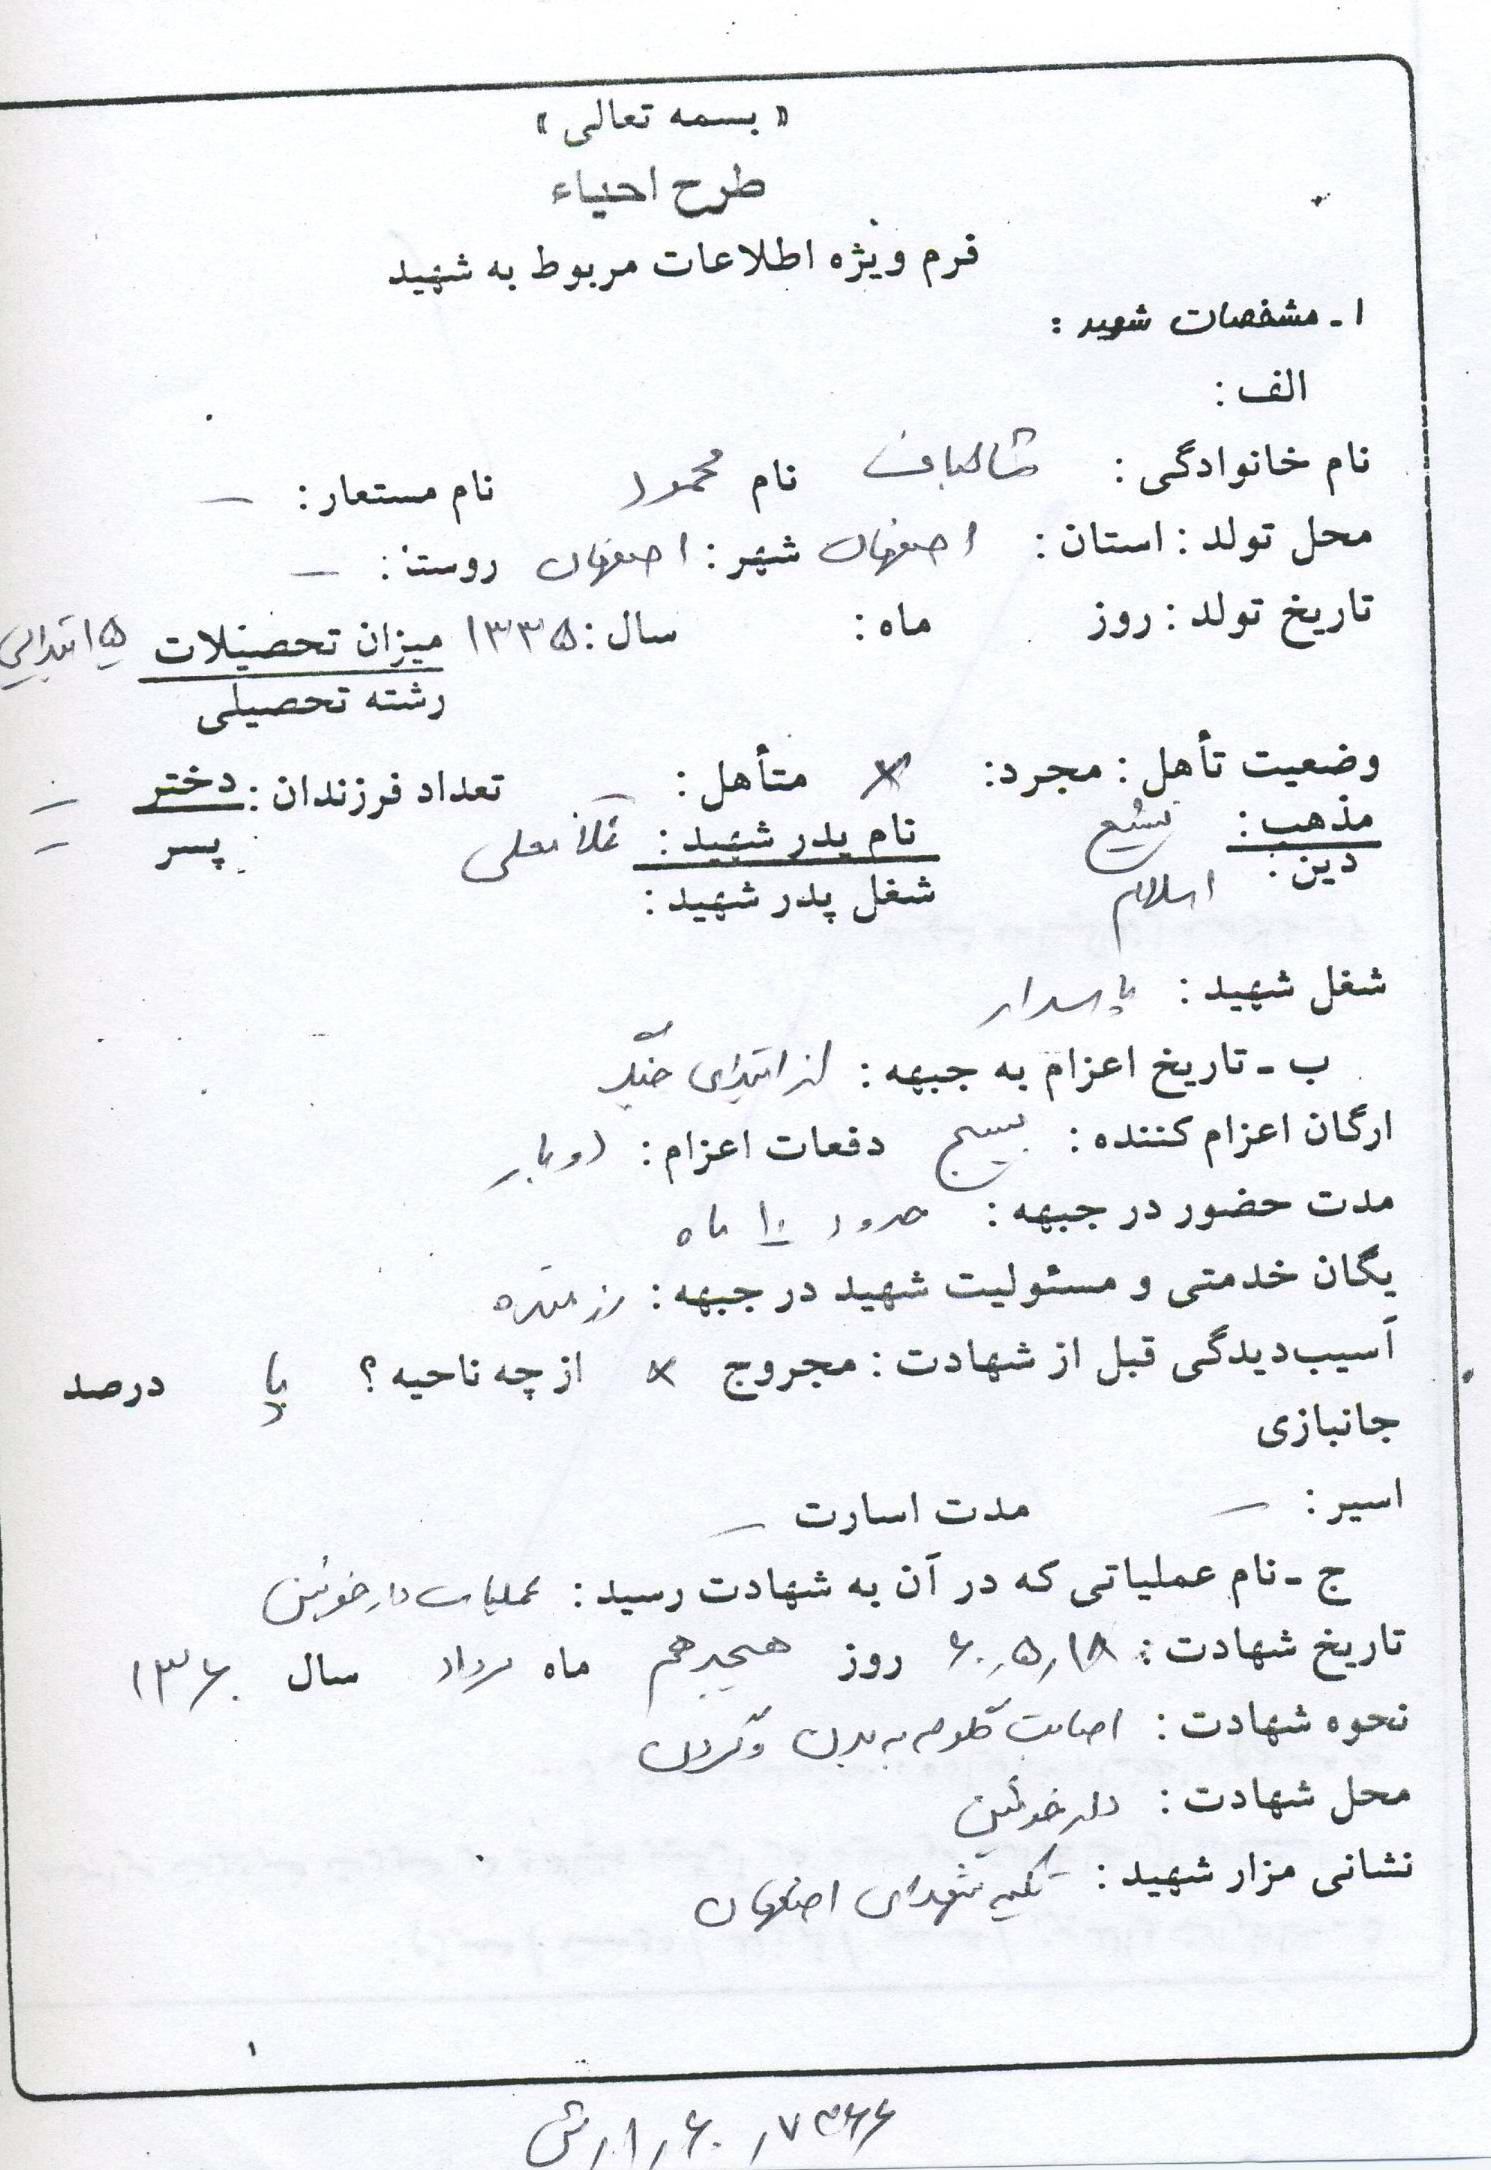 « بسمه تعالی »
طرح احیاء
فرم ویژه اطلاعات مربوط به شهید
۱ ـ مشخصات شهید :
الف :
نام خانوادگی : شالباف نام محمود نام مستعار : –
محل تولد : استان : اصفهان شهر : اصفهان روستا : –
تاریخ تولد : روز ماه : سال : ۱۳۳۵ میزان تحصیلات ۵ ابتدایی
رشته تحصیلی
وضعیت تأهل : مجرد : × متأهل : – تعداد فرزندان : دختر –
مذهب : تشیع نام پدر شهید : غلامعلی پسر –
دین : اسلام شغل پدر شهید :
شغل شهید : پاسدار
ب ـ تاریخ اعزام به جبهه : از ابتدای جنگ
ارگان اعزام کننده : بسیج دفعات اعزام : دوبار
مدت حضور در جبهه : حدود ۱۰ ماه
یگان خدمتی و مسئولیت شهید در جبهه : رزمنده
آسیب‌دیدگی قبل از شهادت : مجروح × از چه ناحیه ؟ پا درصد
جانبازی
اسیر : – مدت اسارت –
ج ـ نام عملیاتی که در آن به شهادت رسید : عملیات دارخوئین
تاریخ شهادت : ۶۰٫۵٫۱۸ روز هیجدهم ماه مرداد سال ۱۳۶۰
نحوه شهادت : اصابت گلوله به بدن و گردن
محل شهادت : دارخوئین
نشانی مزار شهید : تکیه شهدای اصفهان
۱